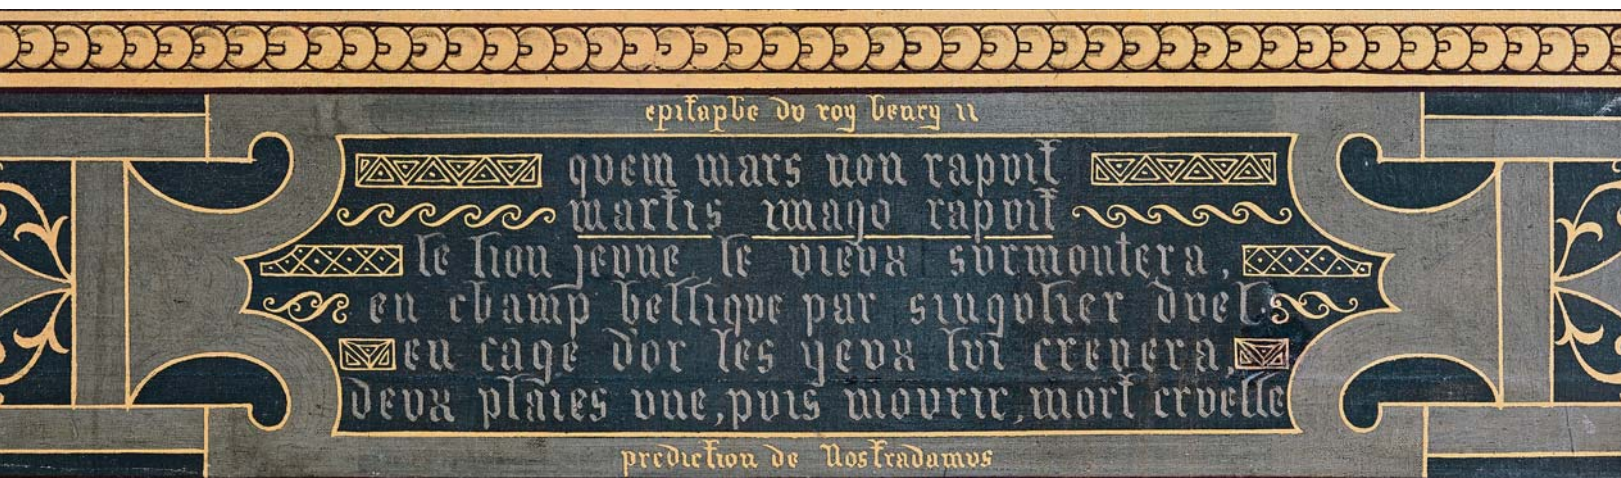 epitaphe dv roy henry ii
qvem mars non rapvit
martis imago rapvit
le lion jevne le vievx svrmontera,
en champ belliqve par singvlier dvel
en cage dor les yevx lvi crevera,
devx plaies vne, pvis movrir, mort crvelle
prediction de Nostradamvs